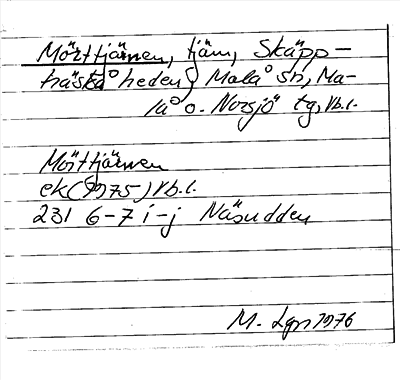 Mörttjärnen, tjärn, Skäpp-
träskåheden, Malå sn, Ma-
lå o. Norsjö tg, Vb.l.
Mörttjärnen
ek (1975) Vb.l.
231 6-7 i-j Näsudden
M. Lgn 1976